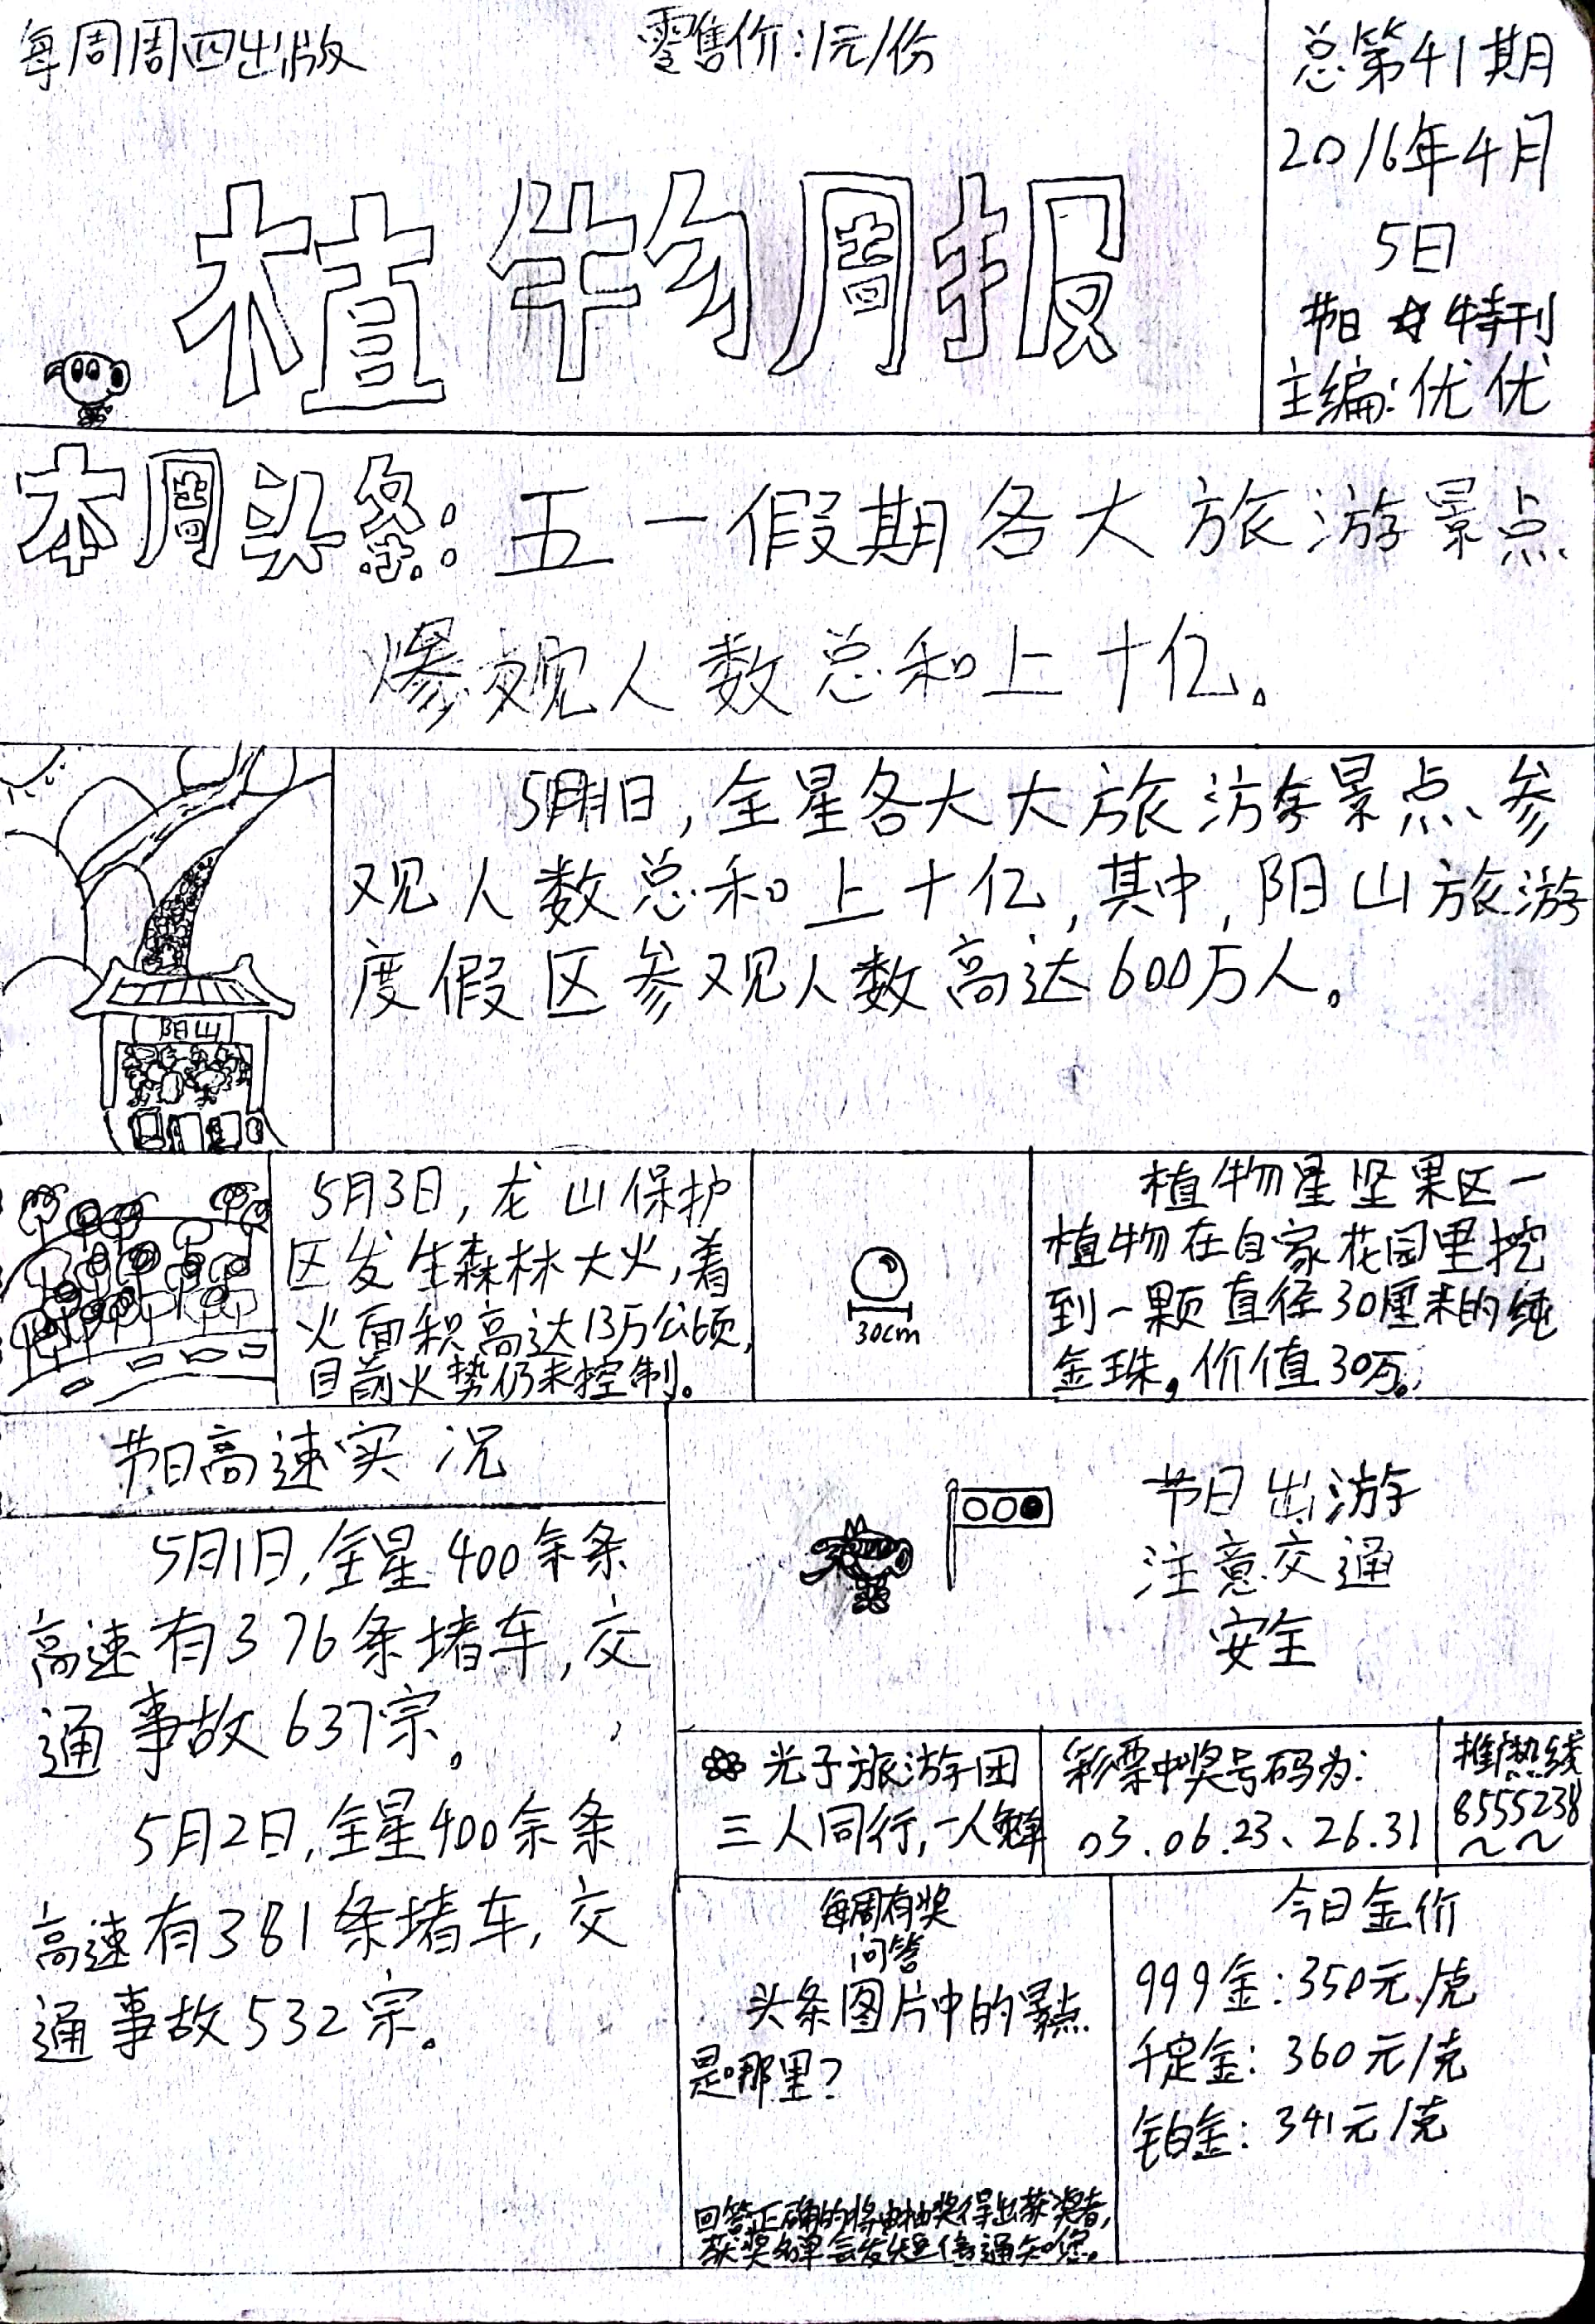 每周周四出版
零售价:1元/份
总第41期
2016年4月
5日
节日☆特刊
主编:优优
植物周报
本周头条:五一假期各大旅游景点
参观人数总和上十亿。
5月1日,全星各大大旅游景点、参
观人数总和上十亿,其中,阳山旅游
度假区参观人数高达600万人。
阳山
5月3日,龙山保护
区发生森林大火,着
火面积高达13万公顷,
目前火势仍未控制。
30cm
植物星坚果区一
植物在自家花园里挖
到一颗直径30厘米的纯
金珠,价值30万。
节日高速实况
5月1日,全星400余条
高速有376条堵车,交
通事故637宗。
5月2日,全星400余条
高速有381条堵车,交
通事故532宗。
节日出游
注意交通
安全
光子旅游团
三人同行,一人免单
彩票中奖号码为:
03.06.23、26.31
热线
8555238
~~
每周有奖
问答
头条图片中的景点
是哪里?
回答正确的将由抽奖得出获奖者,
获奖名单会发短信通知您。
今日金价
999金:350元/克
千足金:360元/克
铂金:341元/克